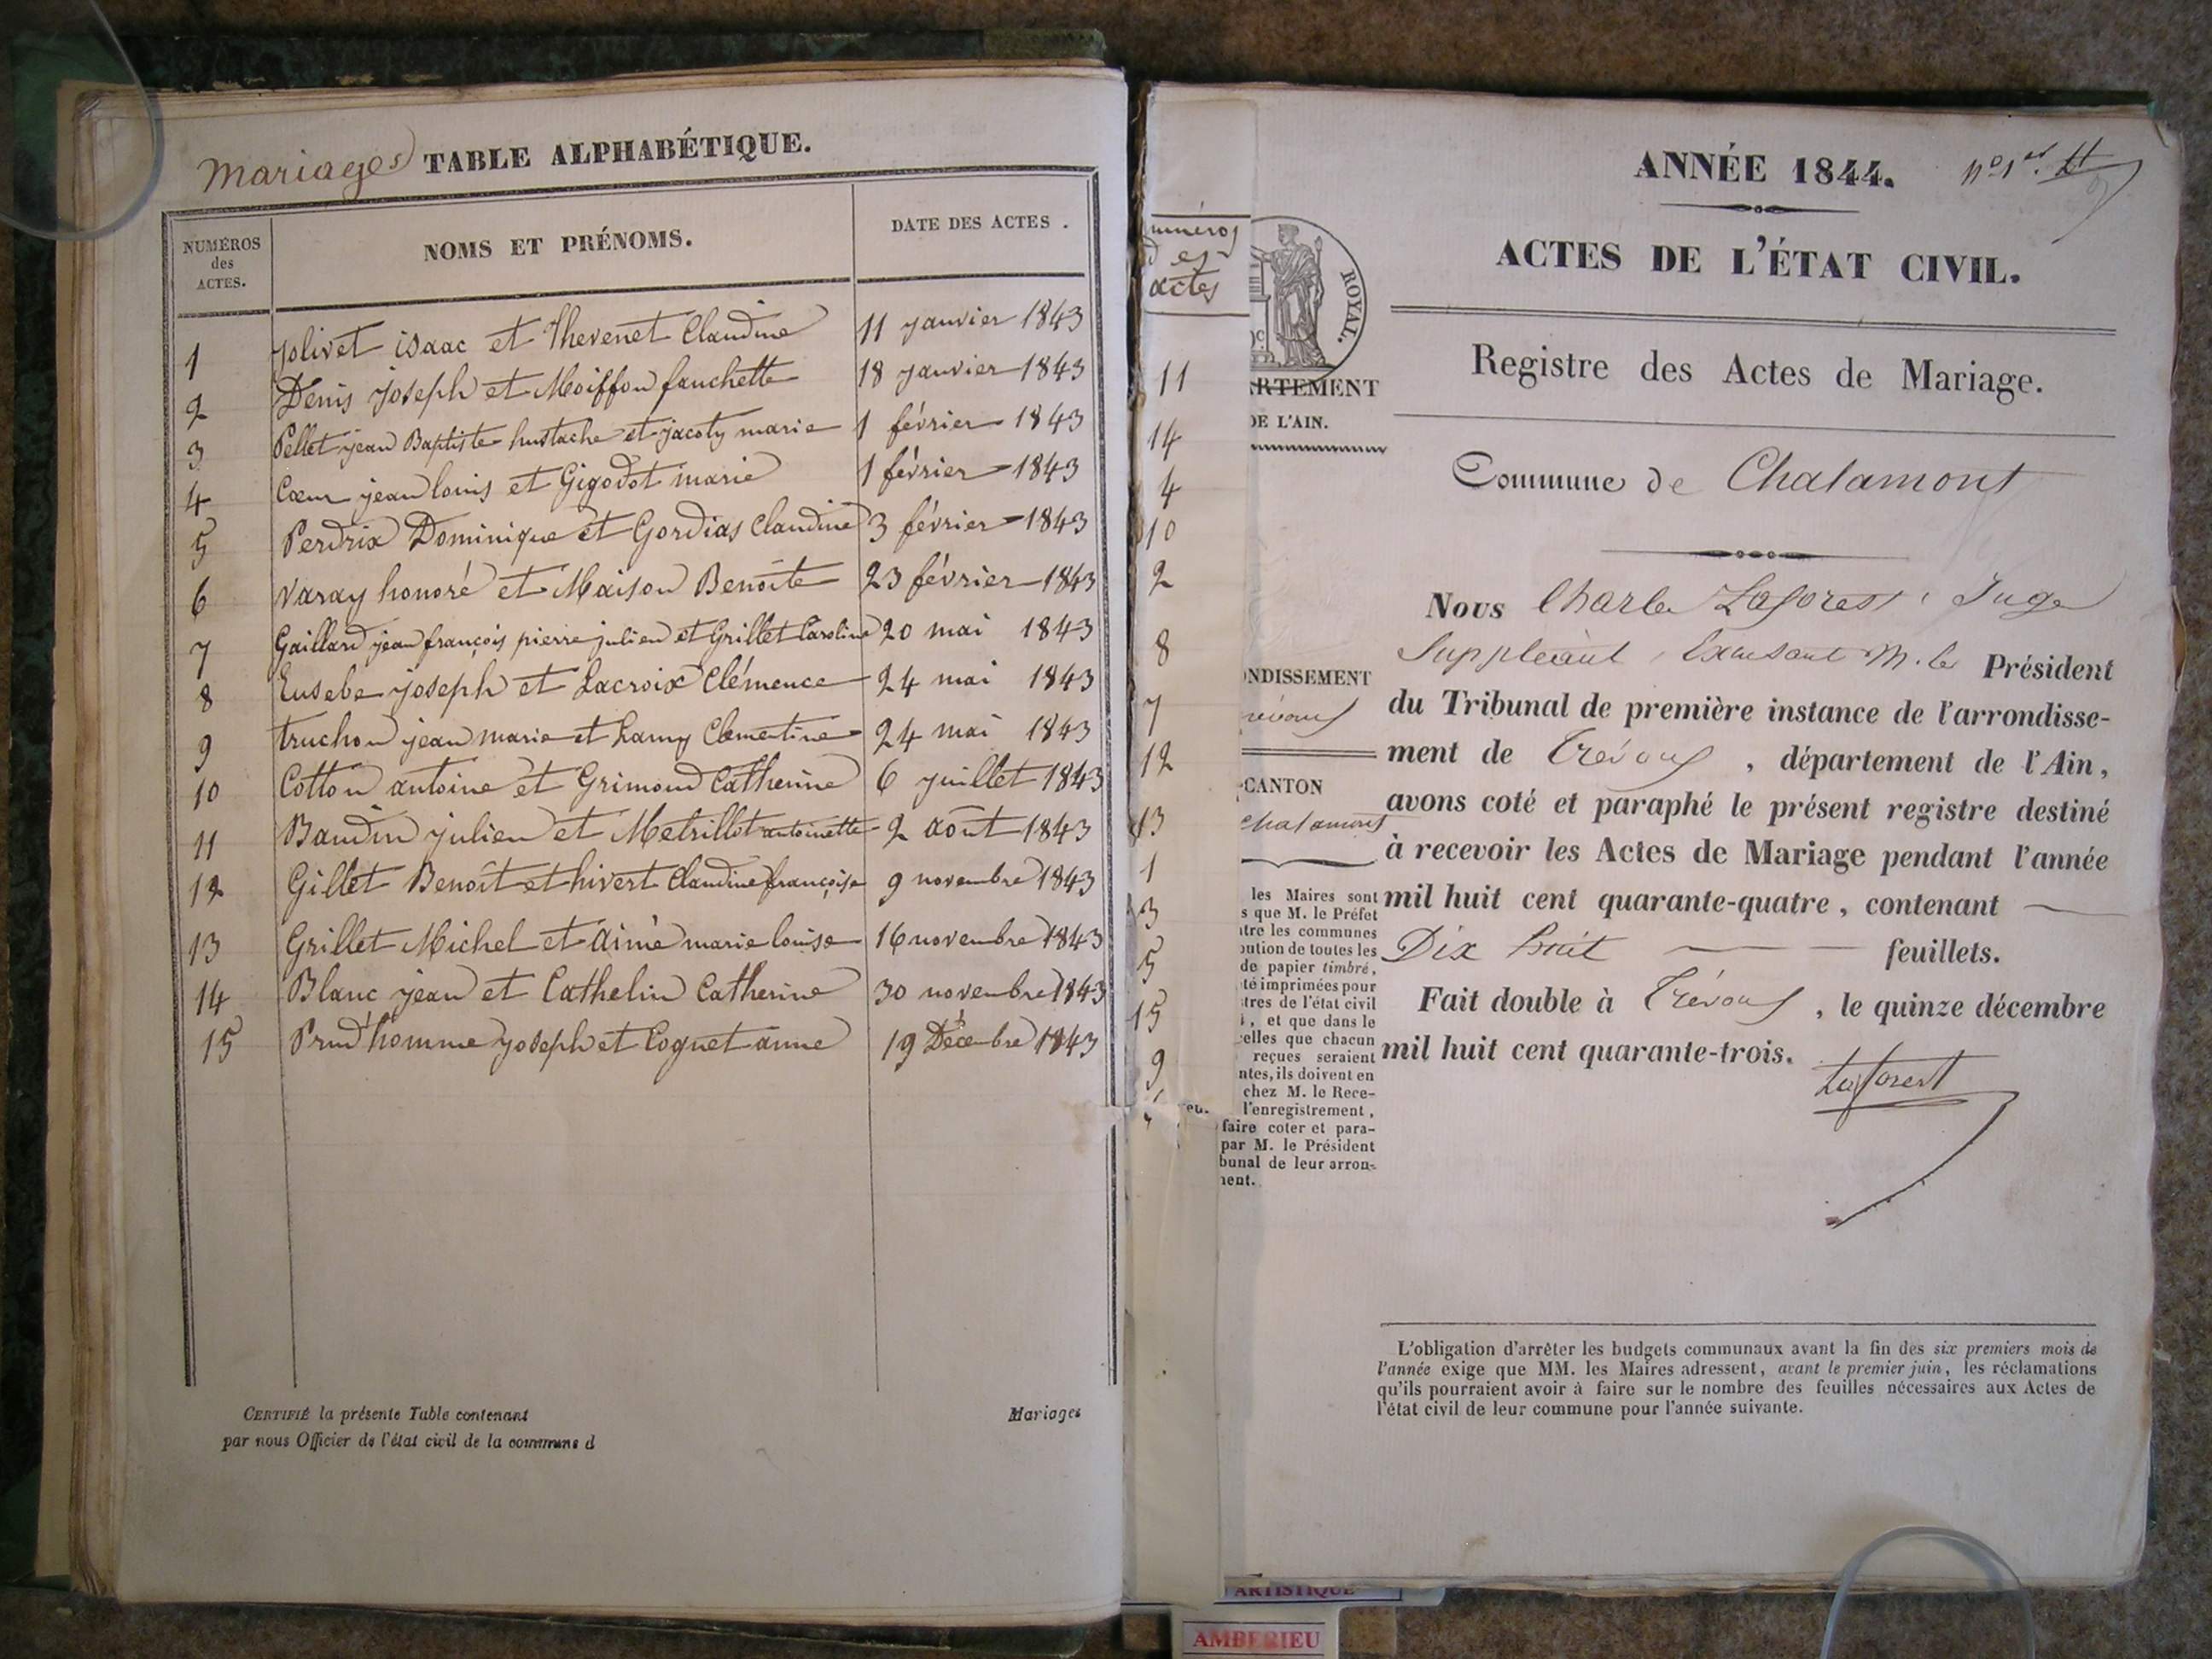 Mariages TABLE ALPHABÉTIQUE.
NUMÉROS
des
ACTES.
NOMS ET PRÉNOMS.
DATE DES ACTES.
1 jolivet isaac et Thevenet Claudine 11 janvier 1843
2 Denis joseph et Moiffon fanchette 18 janvier 1843
3 Pellet jean Baptiste hustache et jacoty marie 1 février 1843
4 Cœur jean louis et Gigodot marie 1 février 1843
5 Perdrix Dominique et Gordias Claudine 3 février 1843
6 Varay honoré et Maison Benoite 23 février 1843
7 Gaillard jean françois pierre julien et Grillet Caroline 20 mai 1843
8 Eusebe joseph et Lacroix Clémence 24 mai 1843
9 truchon jean marie et Lamy Clementine 24 mai 1843
10 Cotton antoine et Grimond Catherine 6 juillet 1843
11 Baudin julien et Metrillot antoinette 2 août 1843
12 Gillet Benoît et hivert Claudine françoise 9 novembre 1843
13 Grillet Michel et aimé marie louise 16 novembre 1843
14 Blanc jean et Cathelin Catherine 30 novembre 1843
15 Prud'homme joseph et Coquet anne 19 Décembre 1843
CERTIFIÉ la présente Table contenant Mariages
par nous Officier de l'état civil de la commune d
numéros
des
actes
11
14
4
10
2
8
7
12
13
1
3
5
15
9
ROYAL.
ARTEMENT
DE L'AIN.
NDISSEMENT
révoux
CANTON
Chalamont
les Maires sont
s que M. le Préfet
tre les communes
bution de toutes les
de papier timbré,
té imprimées pour
tres de l'état civil
, et que dans le
elles que chacun
reçues seraient
ntes, ils doivent en
chez M. le Rece-
l'enregistrement,
faire coter et para-
par M. le Président
bunal de leur arron-
ment.
ANNÉE 1844. nº 1er
ACTES DE L'ÉTAT CIVIL.
Registre des Actes de Mariage.
Commune de Chalamont
Nous Charles Laforest, Juge
Suppléant, Excusant M. le Président
du Tribunal de première instance de l'arrondisse-
ment de Trévoux, département de l'Ain,
avons coté et paraphé le présent registre destiné
à recevoir les Actes de Mariage pendant l'année
mil huit cent quarante-quatre, contenant
Dix huit feuillets.
Fait double à Trévoux, le quinze décembre
mil huit cent quarante-trois.
Laforest
L'obligation d'arrêter les budgets communaux avant la fin des six premiers mois de
l'année exige que MM. les Maires adressent, avant le premier juin, les réclamations
qu'ils pourraient avoir à faire sur le nombre des feuilles nécessaires aux Actes de
l'état civil de leur commune pour l'année suivante.
ARTISTIQUE
AMBERIEU